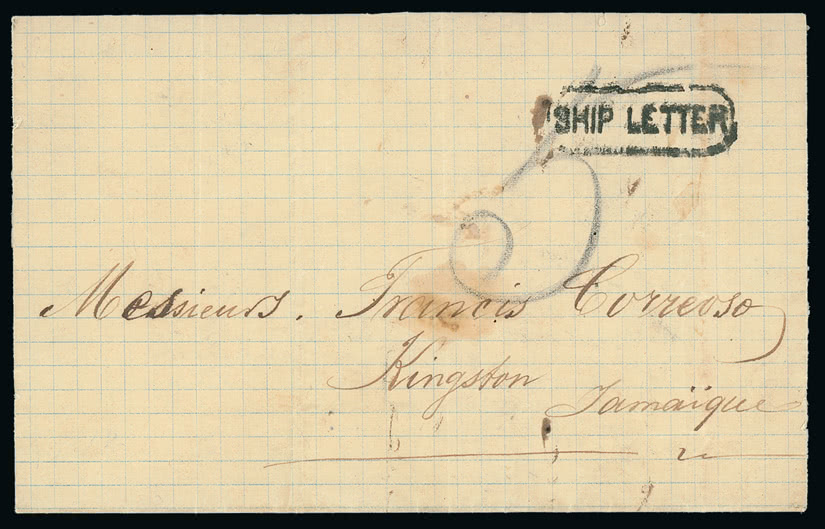 SHIP LETTER
5
Messieurs. Francis Correoso
Kingston
Jamaïque